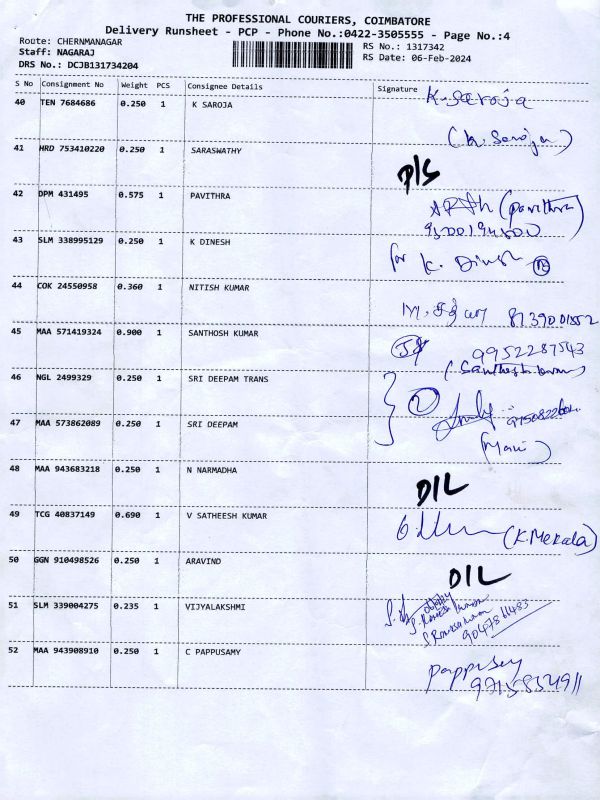 THE PROFESSIONAL COURIERS, COIMBATORE
Delivery Runsheet - PCP - Phone No.:0422-3505555 - Page No.:4
Route: CHERNMANAGAR
RS No.: 1317342
Staff: NAGARAJ
RS Date: 06-Feb-2024
DRS No.: DCJB131734204
S No Consignment No Weight PCS Consignee Details Signature
40 TEN 7684686 0.250 1 K SAROJA K. Saroja
(K. Saroja)
41 HRD 753410220 0.250 1 SARASWATHY
D/S
42 DPM 431495 0.575 1 PAVITHRA (Pavithra)
43 SLM 338995129 0.250 1 K DINESH for K. Dinesh
44 COK 24550958 0.360 1 NITISH KUMAR
45 MAA 571419324 0.900 1 SANTHOSH KUMAR 9952287543
46 NGL 2499329 0.250 1 SRI DEEPAM TRANS
47 MAA 573862089 0.250 1 SRI DEEPAM
(Mani)
48 MAA 943683218 0.250 1 N NARMADHA D/L
49 TCG 40837149 0.690 1 V SATHEESH KUMAR (K.Mekala)
50 GGN 910498526 0.250 1 ARAVIND D/L
51 SLM 339004275 0.235 1 VIJYALAKSHMI
52 MAA 943908910 0.250 1 C PAPPUSAMY Pappusamy